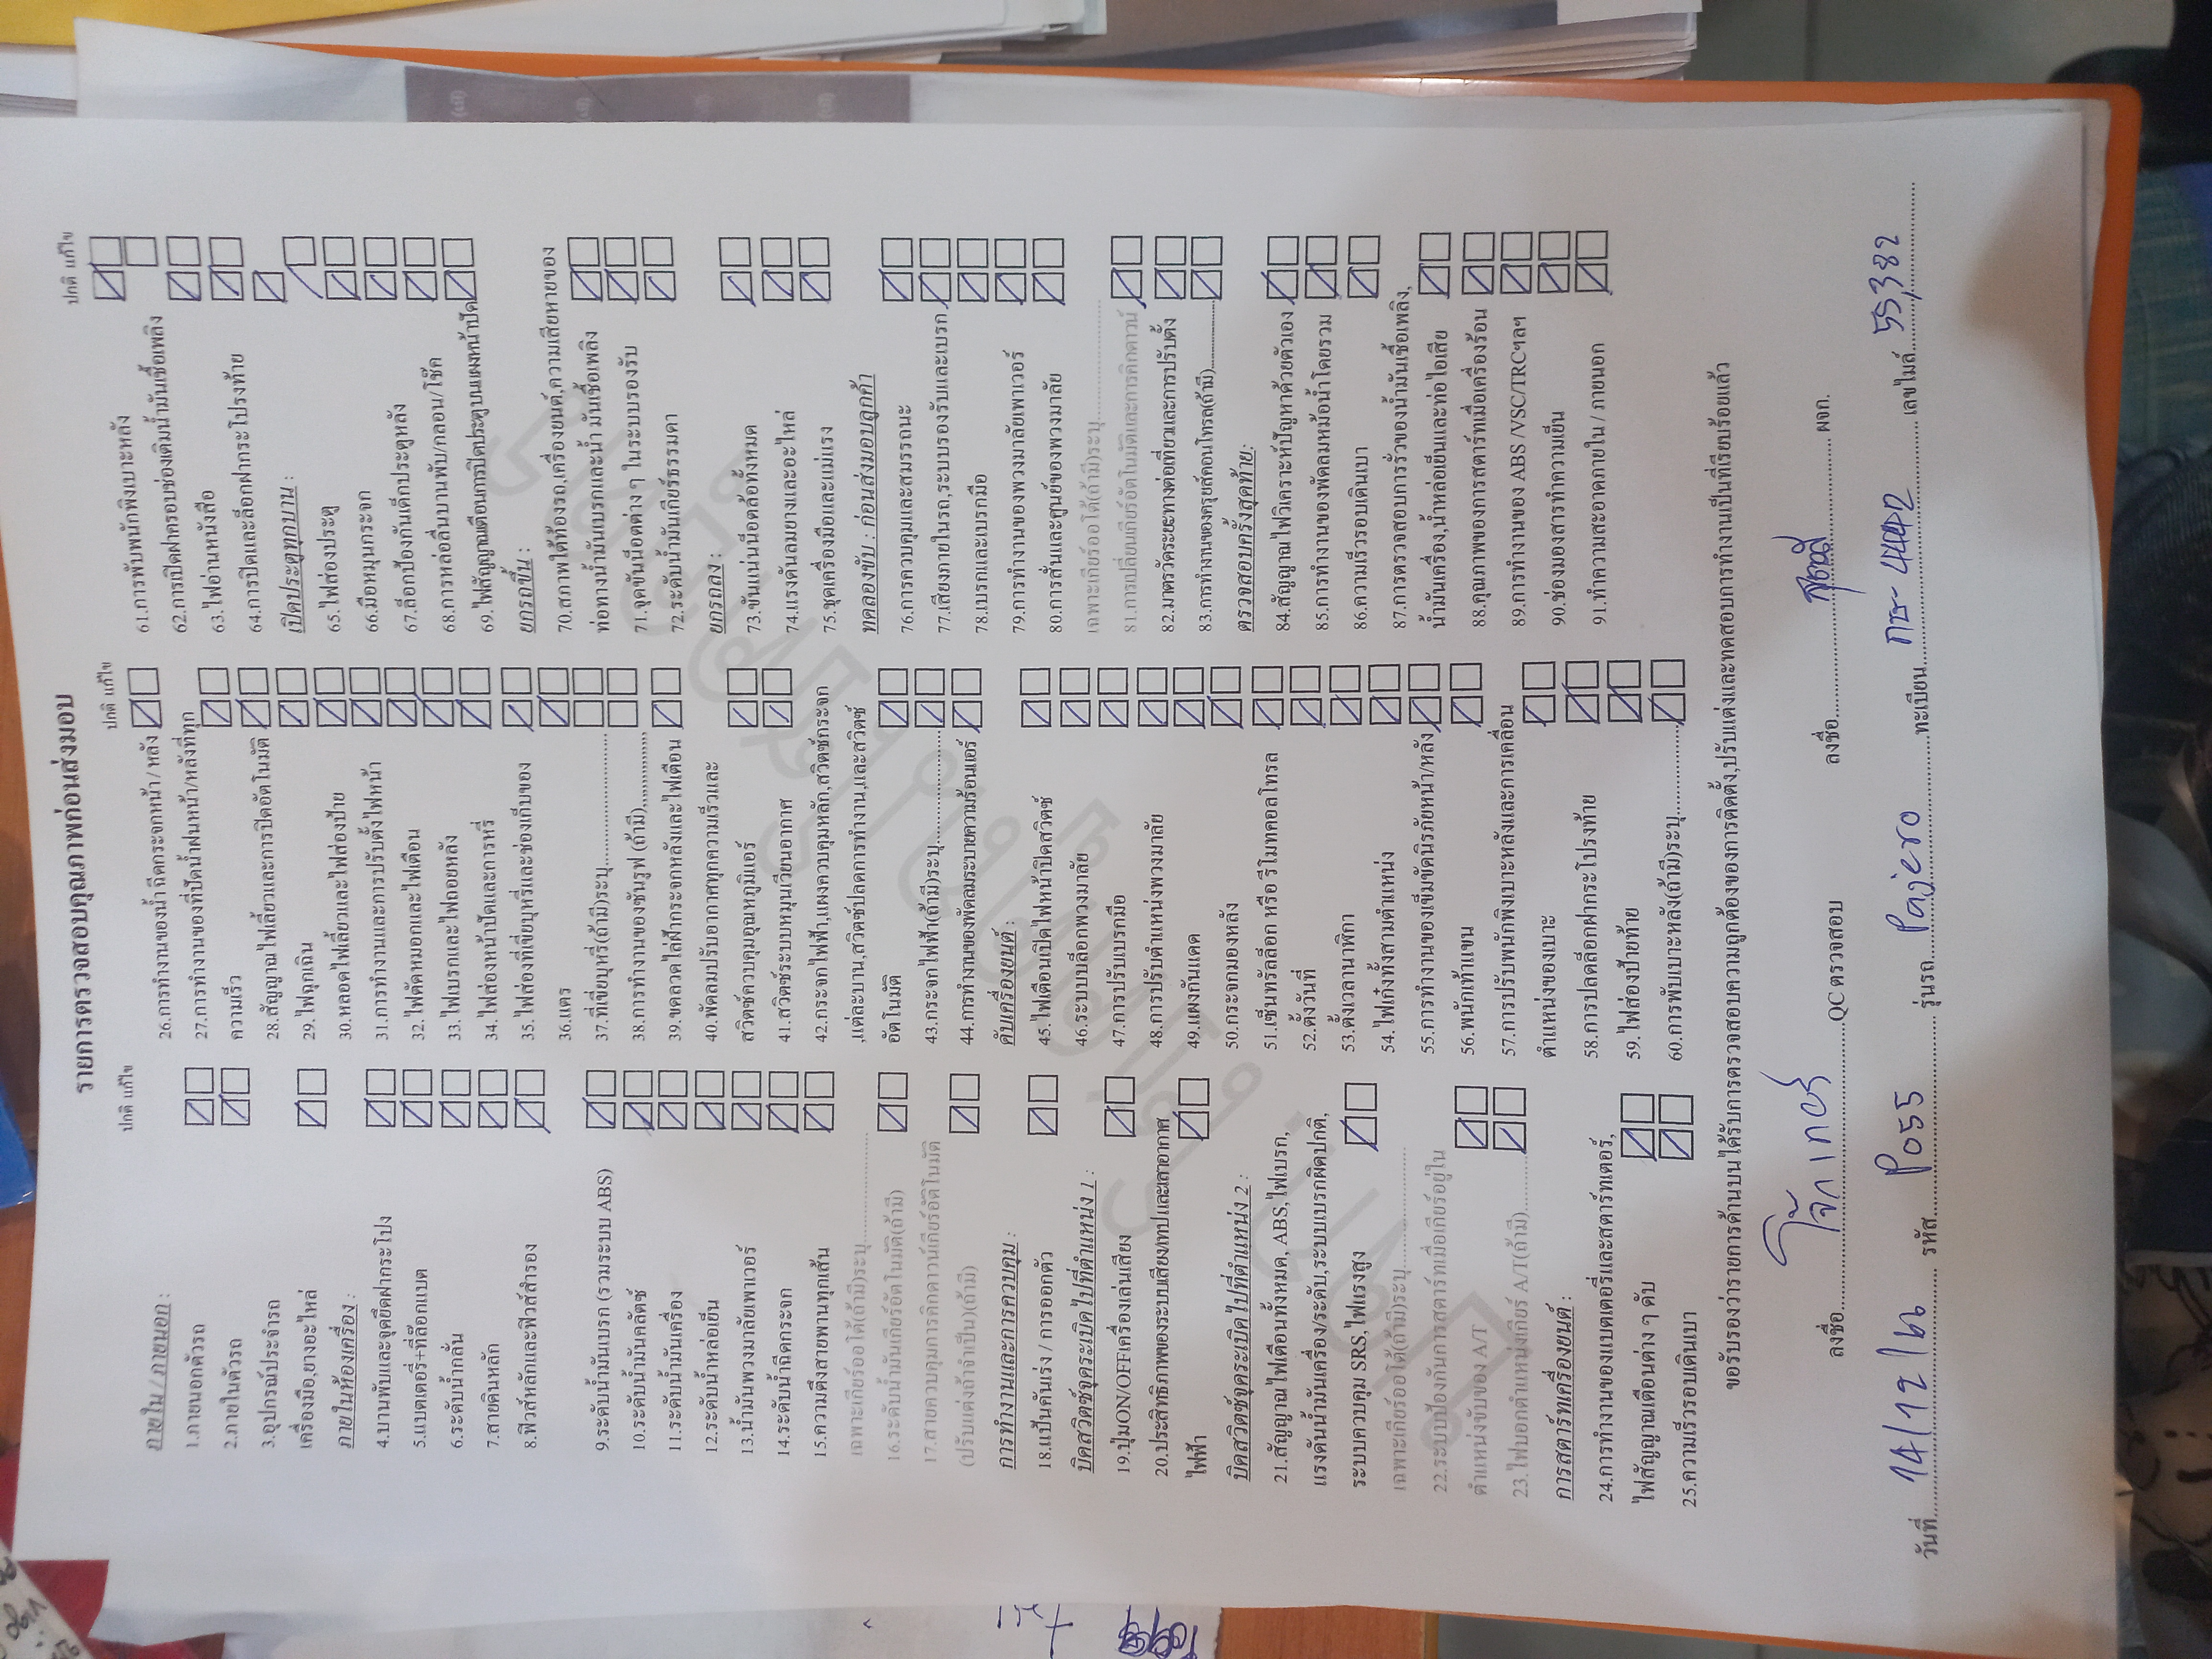 รายการตรวจสอบคุณภาพก่อนส่งมอบ
ปกติ แก้ไข
ภายใน / ภายนอก :
1.ภายนอกตัวรถ
2.ภายในตัวรถ
3.อุปกรณ์ประจำรถ
เครื่องมือ,ยางอะไหล่
ภายในห้องเครื่อง :
4.บานพับและจุดยึดฝากระโปง
5.แบตเตอรี่+ที่ล๊อกแบต
6.ระดับน้ำกลั่น
7.สายดินหลัก
8.ฟิวส์หลักและฟิวส์สำรอง
9.ระดับน้ำมันเบรก (รวมระบบ ABS)
10.ระดับน้ำมันคลัตช์
11.ระดับน้ำมันเครื่อง
12.ระดับน้ำหล่อเย็น
13.น้ำมันพวงมาลัยเพาเวอร์
14.ระดับน้ำฉีดกระจก
15.ความตึงสายพานทุกเส้น
เฉพาะเกียร์ออโต้(ถ้ามี)ระบุ....................
16.ระดับน้ำมันเกียร์อัตโนมัติ(ถ้ามี)
17.สายควบคุมการคิกดาวน์เกียร์อัติโนมัติ
(ปรับแต่งถ้าจำเป็น)(ถ้ามี)
การทำงานและการควบคุม :
18.แป้นคันเร่ง / การออกตัว
บิดสวิตช์จุดระเบิดไปที่ตำแหน่ง 1 :
19.ปุ่มON/OFFเครื่องเล่นเสียง
20.ประสิทธิภาพของระบบเสียง/เทป และเสาอากาศ
ไฟฟ้า
บิดสวิตช์จุดระเบิดไปที่ตำแหน่ง 2 :
21.สัญญาณไฟเตือนทั้งหมด, ABS,ไฟเบรก,
แรงดันน้ำมันเครื่อง/ระดับ,ระบบเบรกผิดปกติ,
ระบบควบคุม SRS,ไฟแรงสูง
เฉพาะเกียร์ออโต้(ถ้ามี)ระบุ....................
22.ระบบป้องกันการสตาร์ทเมื่อเกียร์อยู่ใน
ตำแหน่งขับของ A/T
23.ไฟบอกตำแหน่งเกียร์ A/T(ถ้ามี)....................
การสตาร์ทเครื่องยนต์ :
24.การทำงานของแบตเตอรี่และสตาร์ทเตอร์,
ไฟสัญญาณเตือนต่าง ๆ ดับ
25.ความเร็วรอบเดินเบา
ปกติ แก้ไข
26.การทำงานของน้ำฉีดกระจกหน้า / หลัง
27.การทำงานของที่ปัดน้ำฝนหน้า/หลังที่ทุก
ความเร็ว
28.สัญญาณไฟเลี้ยวและการปิดอัตโนมัติ
29.ไฟฉุกเฉิน
30.หลอดไฟเลี้ยวและไฟส่องป้าย
31.การทำงานและการปรับตั้งไฟหน้า
32.ไฟตัดหมอกและไฟเตือน
33.ไฟเบรกและไฟถอยหลัง
34.ไฟส่องหน้าปัดและการหรี่
35.ไฟส่องที่เขี่ยบุหรี่และช่องเก็บของ
36.แตร
37.ที่เขี่ยบุหรี่(ถ้ามี)ระบุ....................
38.การทำงานของซันรูฟ (ถ้ามี),,,,,,,,,,,,,,
39.ขดลวดไล่ฝ้ากระจกหลังและไฟเตือน
40.พัดลมปรับอากาศทุกความเร็วและ
สวิตช์ควบคุมอุณหภูมิแอร์
41.สวิตช์ระบบหมุนเวียนอากาศ
42.กระจกไฟฟ้า,แผงควบคุมหลัก,สวิตช์กระจก
,แต่ละบาน,สวิตช์ปลดการทำงาน,และสวิตช์
อัตโนมัติ
43.กระจกไฟฟ้า(ถ้ามี)ระบุ....................
44.การทำงานของพัดลมระบายความร้อนแอร์
ดับเครื่องยนต์ :
45.ไฟเตือนเปิดไฟหน้าปิดสวิตช์
46.ระบบบล๊อกพวงมาลัย
47.การปรับเบรกมือ
48.การปรับตำแหน่งพวงมาลัย
49.แผงกันแดด
50.กระจกมองหลัง
51.เซ็นทรัลล๊อก หรือ รีโมทคอลโทรล
52.ตั้งวันที่
53.ตั้งเวลานาฬิกา
54.ไฟเก๋งทั้งสามตำแหน่ง
55.การทำงานของเข็มขัดนิรภัยหน้า/หลัง
56.พนักเท้าแขน
57.การปรับพนักพิงเบาะหลังและการเคลื่อน
ตำแหน่งของเบาะ
58.การปลดล็อกฝากระโปรงท้าย
59.ไฟส่องป้ายท้าย
60.การพับเบาะหลัง(ถ้ามี)ระบุ....................
ปกติ แก้ไข
61.การพับพนักพิงเบาะหลัง
62.การเปิดฝาครอบช่องเติมน้ำมันเชื้อเพลิง
63.ไฟอ่านหนังสือ
64.การปิดและล็อกฝากระโปรงท้าย
เปิดประตูทุกบาน :
65.ไฟส่องประตู
66.มือหมุนกระจก
67.ล็อกป้องกันเด็กประตูหลัง
68.การหล่อลื่นบานพับ/กลอน/โช๊ค
69.ไฟสัญญาณเตือนการปิดประตูบนแผงหน้าปัด
ยกรถขึ้น :
70.สภาพใต้ท้องรถ,เครื่องยนต์,ความเสียหายของ
ท่อทางน้ำมันเบรกและน้ำ มันเชื้อเพลิง
71.จุดขันน๊อตต่าง ๆ ในระบบรองรับ
72.ระดับน้ำมันเกียร์ธรรมดา
ยกรถลง :
73.ขันแน่นน๊อตล้อทั้งหมด
74.แรงดันลมยางและอะไหล่
75.ชุดเครื่องมือและแม่แรง
ทดลองขับ : ก่อนส่งมอบลูกค้า
76.การควบคุมและสมรรถนะ
77.เสียงภายในรถ,ระบบรองรับและเบรก
78.เบรกและเบรกมือ
79.การทำงานของพวงมาลัยเพาเวอร์
80.การสั่นและศูนย์ของพวงมาลัย
เฉพาะเกียร์ออโต้(ถ้ามี)ระบุ....................
81.การเปลี่ยนเกียร์อัตโนมัติและการคิกดาวน์
82.มาตรวัดระยะทางต่อเที่ยวและการปรับตั้ง
83.การทำงานของครุยส์คอนโทรล(ถ้ามี)....................
ตรวจสอบครั้งสุดท้าย:
84.สัญญาณไฟวิเคราะห์ปัญหาด้วยตัวเอง
85.การทำงานของพัดลมหม้อน้ำโดยรวม
86.ความเร็วรอบเดินเบา
87.การตรวจสอบการรั่วของน้ำมันเชื้อเพลิง,
น้ำมันเครื่อง,น้ำหล่อเย็นและท่อไอเสีย
88.คุณภาพของการสตาร์ทเมื่อเครื่องร้อน
89.การทำงานของ ABS /VSC/TRCฯลฯ
90.ช่องมองสารทำความเย็น
91.ทำความสะอาดภายใน / ภายนอก
ขอรับรองว่ารายการด้านบนได้รับการตรวจสอบความถูกต้องของการติดตั้ง,ปรับแต่งและทดสอบการทำงานเป็นที่เรียบร้อยแล้ว
ลงชื่อ....................QC ตรวจสอบ ลงชื่อ.................... ผจก.
วันที่ 14/12/66 รหัส P055 รุ่นรถ Pajero ทะเบียน กษ-4442 เลขไมล์ 55,382